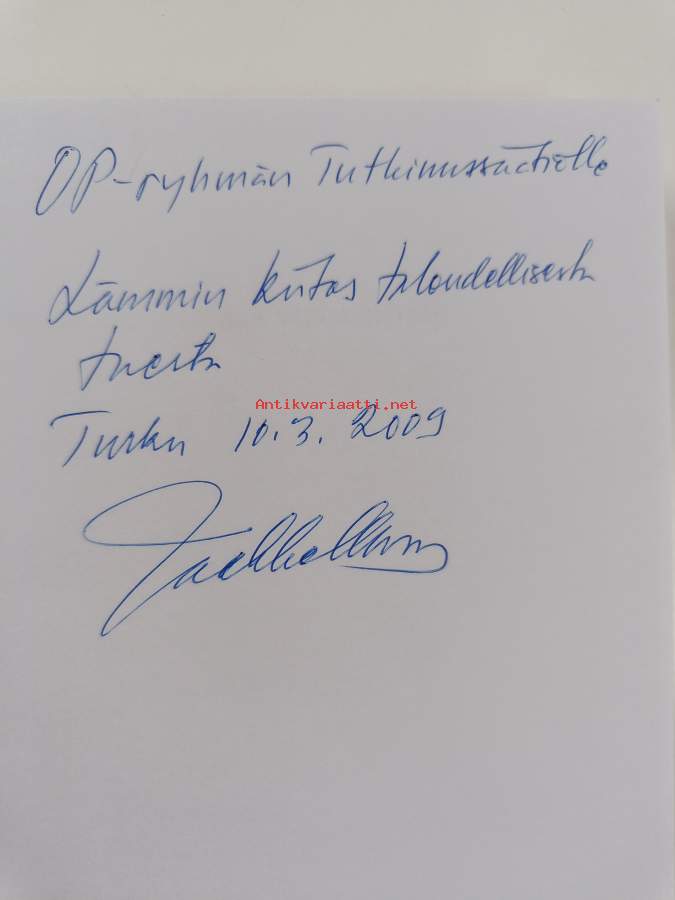 OP-ryhmän Tutkimussäätiölle
Lämmin kiitos taloudellisesta
tuesta
Antikvariaatti.net
Turku 10.3.2009